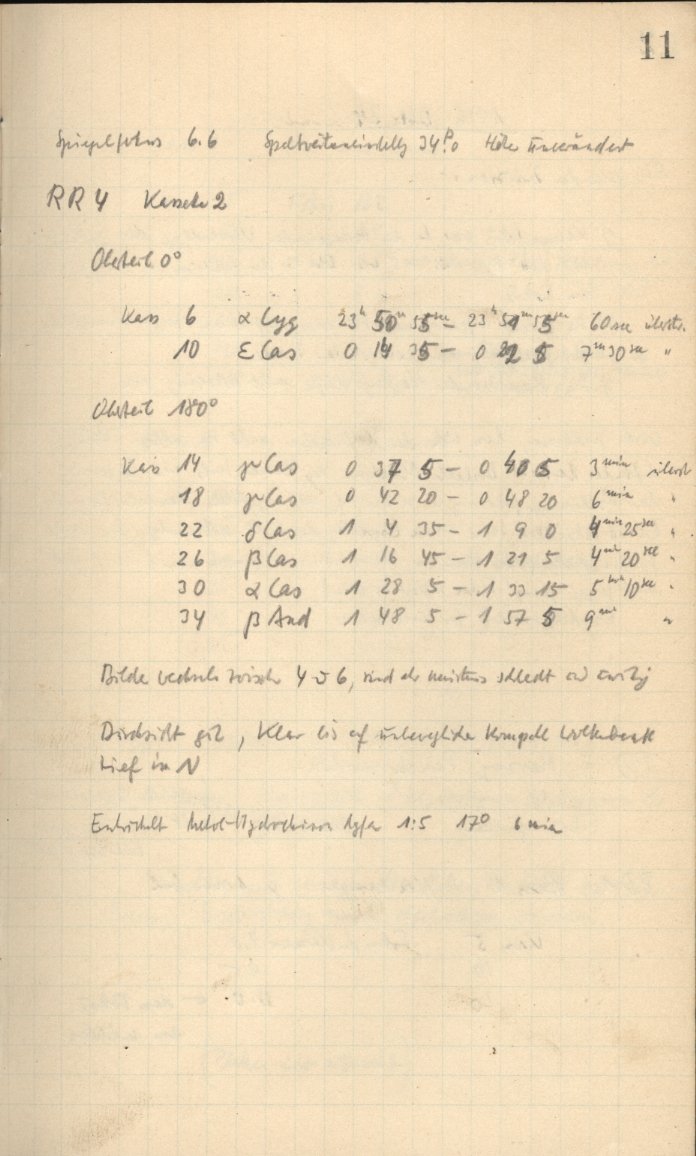 11
Spiegelfokus 6.6 Spaltweiteneinstellg 34.0 Höhe unverändert
RR 4 Kassette 2
Oberteil 0°
Kass 6 α Cyg 23h 50m 55sec – 23h 51m 55sec 60 sec überstr.
10 ε Cas 0 14 35 – 0 22 5 7m 30sec "
Oberteil 180°
Kass 14 γ Cas 0 37 5 – 0 40 5 3min überstr
18 γ Cas 0 42 20 – 0 48 20 6min "
22 δ Cas 1 4 35 – 1 9 0 4min 25sec "
26 β Cas 1 16 45 – 1 21 5 4min 20sec
30 α Cas 1 28 5 – 1 33 15 5min 10sec "
34 β And 1 48 5 – 1 57 5 9min "
Bilder wechseln zwischen 4 u 6, sind aber meistens schlecht und unruhig
Durchsicht gut, Klar bis auf unbewegliche kompakte Wolkenbank
tief im N
Entwickelt Metol-Hydrochinon Agfa 1:5 17° 6 min